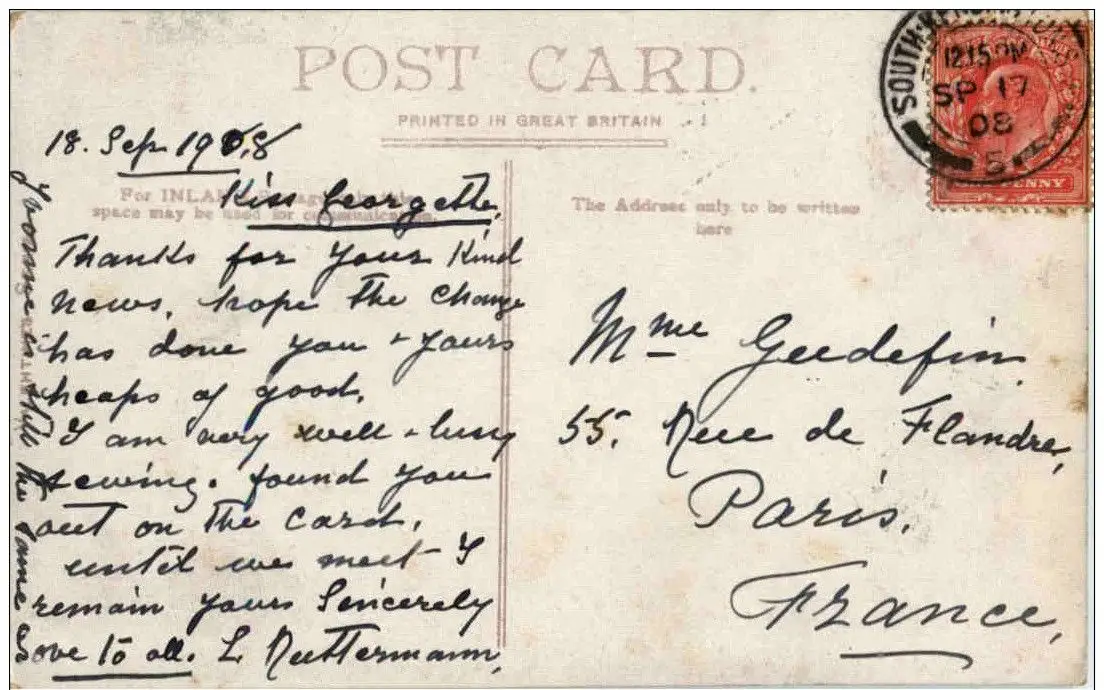 POST CARD.
PRINTED IN GREAT BRITAIN
For INLAND
space may be used for communication.
The Address only to be written
here
SOUTH KENSINGTON
12.15 PM
SP 17
08
5
PENNY
18. Sep. 1908
Kiss Georgette.
Thanks for your kind
news, hope the change
has done you + yours
heaps of good.
I am very well + busy
sewing. found you
out on the card.
until we meet I
remain yours Sincerely
Love to all. L Nuttermann,
Yvonne is still the same
Mme Guedefin.
55. Rue de Flandre,
Paris.
France,